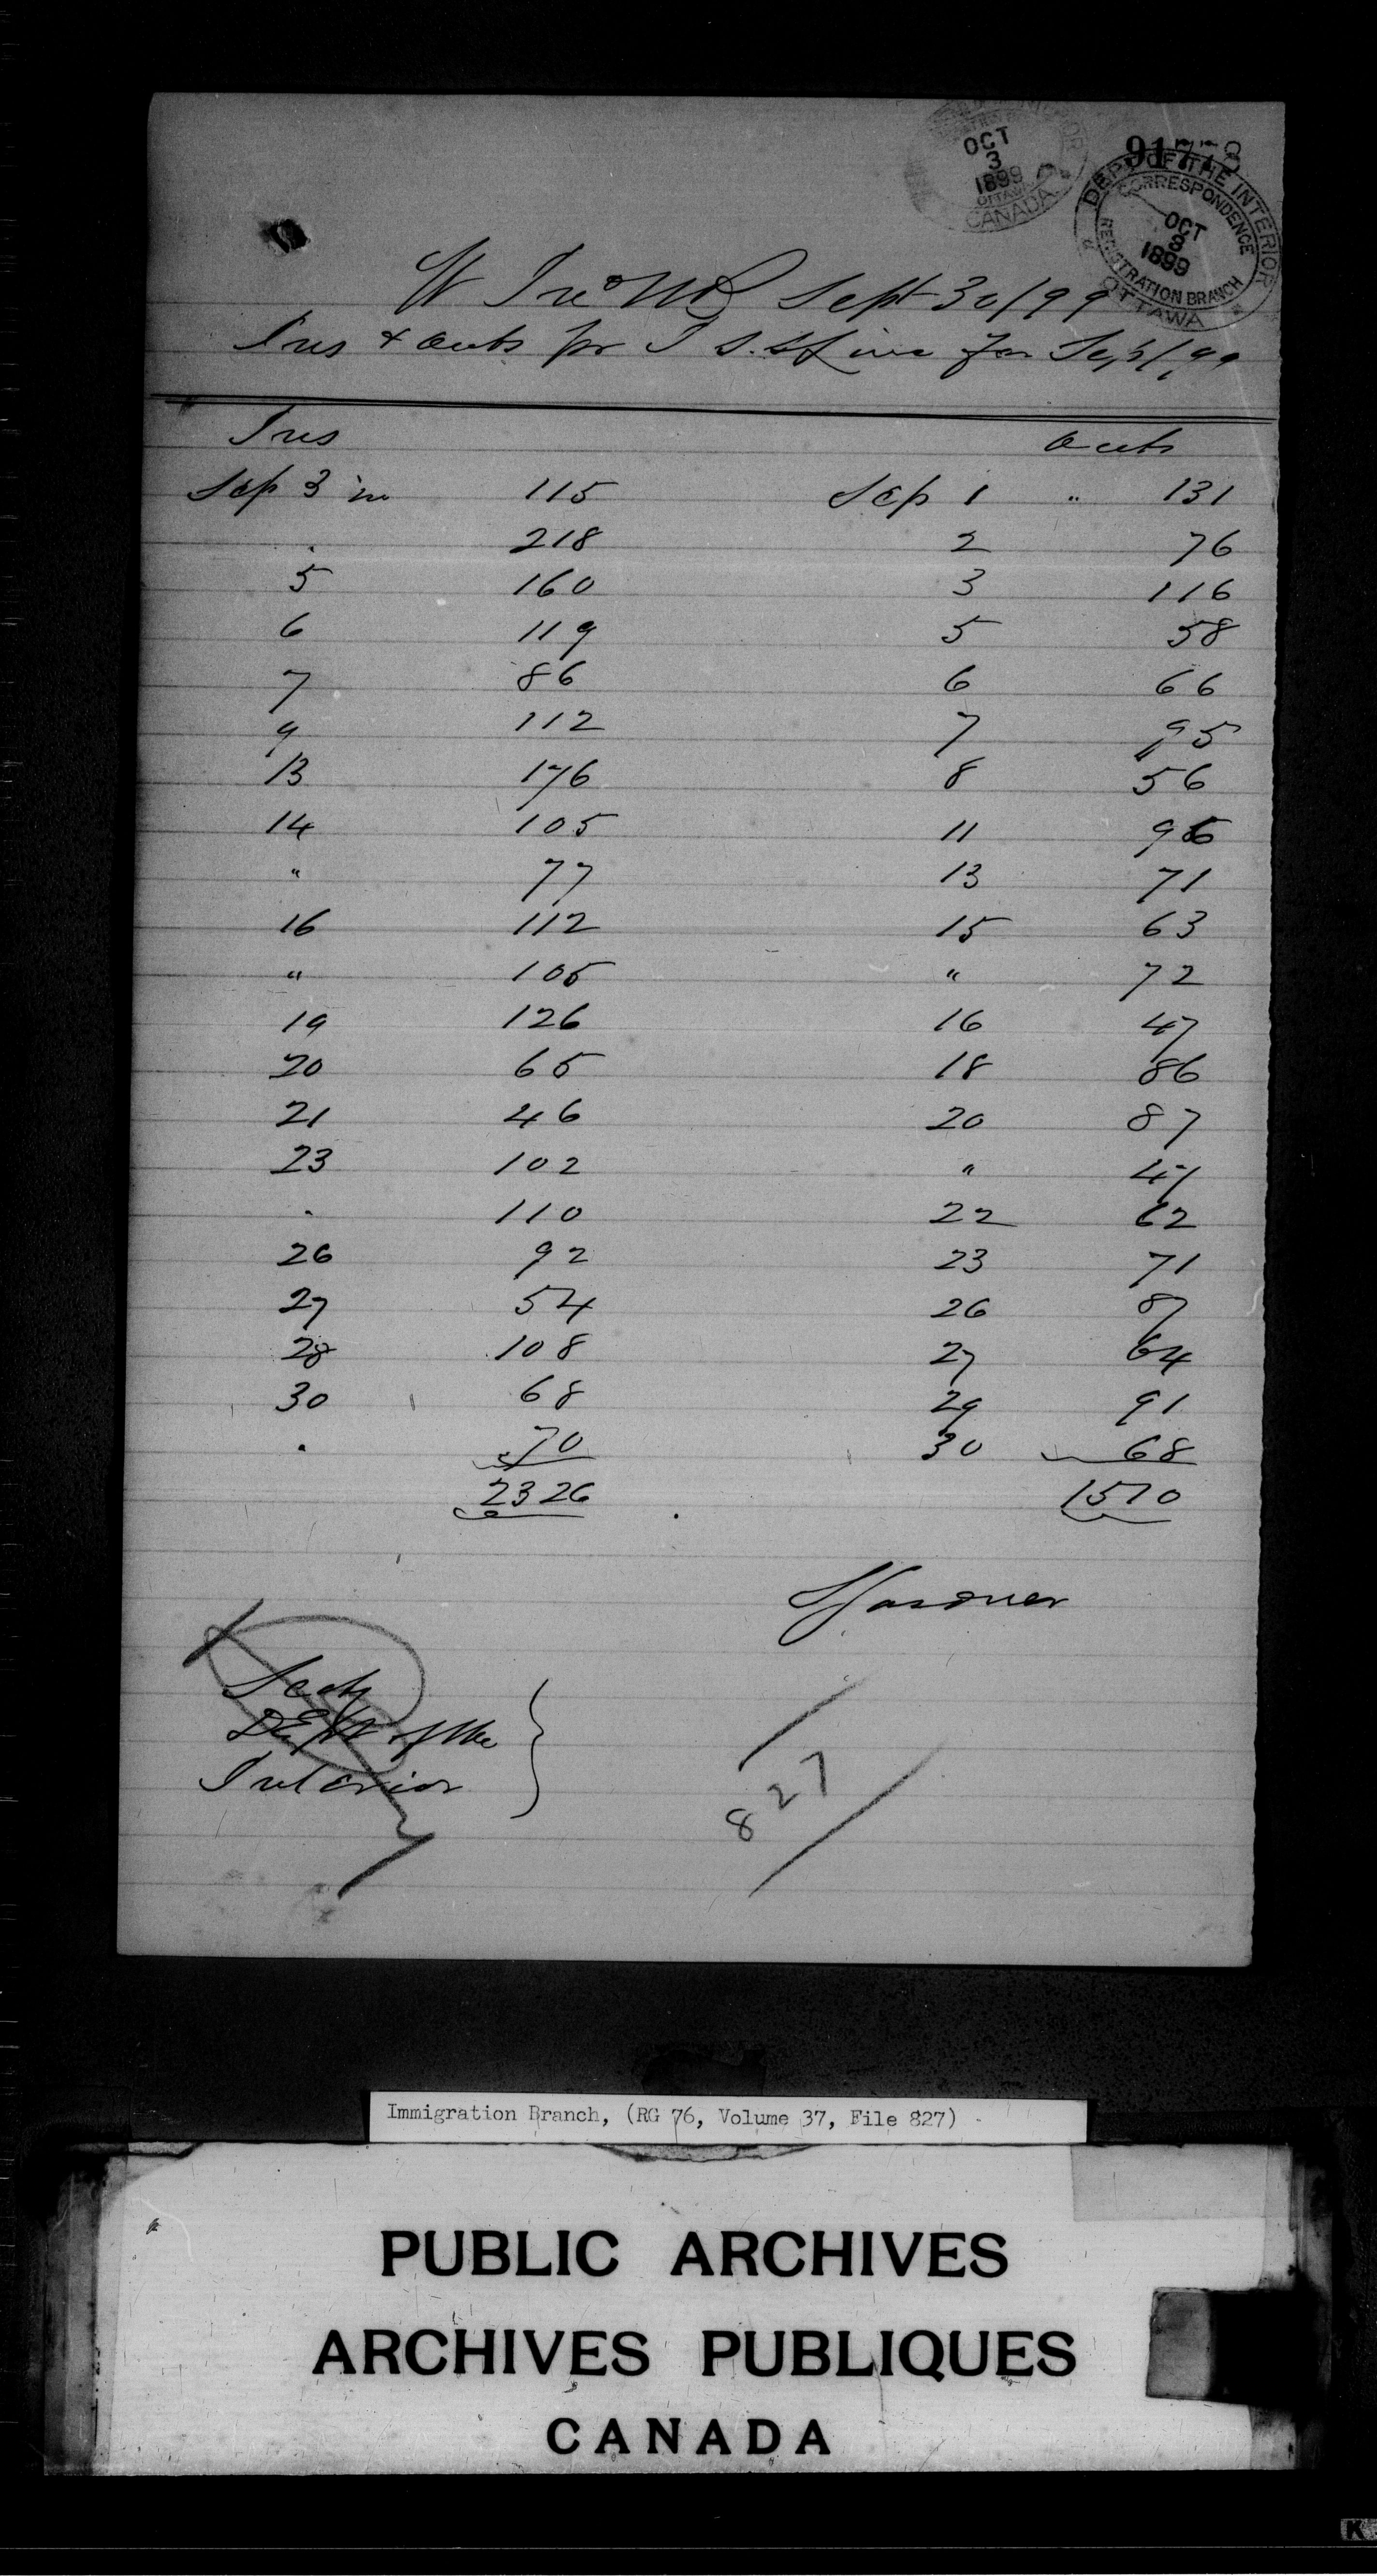 OCT
3
1899
OTTAWA
CANADA
91778
DEPT OF THE INTERIOR
CORRESPONDENCE
OCT
3
1899
REGISTRATION BRANCH
OTTAWA
Sept 30/99
Ins & Outs for Sept/99
Ins Outs
Sep 3 in 115 Sep 1 " 131
" 218 2 76
5 160 3 116
6 119 5 58
7 86 6 66
9 112 7 95
13 176 8 56
14 105 11 96
" 77 13 71
16 112 15 63
" 105 " 72
19 126 16 47
20 65 18 86
21 46 20 87
23 102 " 47
" 110 22 62
26 92 23 71
27 54 26 87
28 108 27 64
30 68 29 91
" 70 30 68
2326 1510
Secty
Dept of the
Interior
827
Immigration Branch, (RG 76, Volume 37, File 827)
PUBLIC ARCHIVES
ARCHIVES PUBLIQUES
CANADA